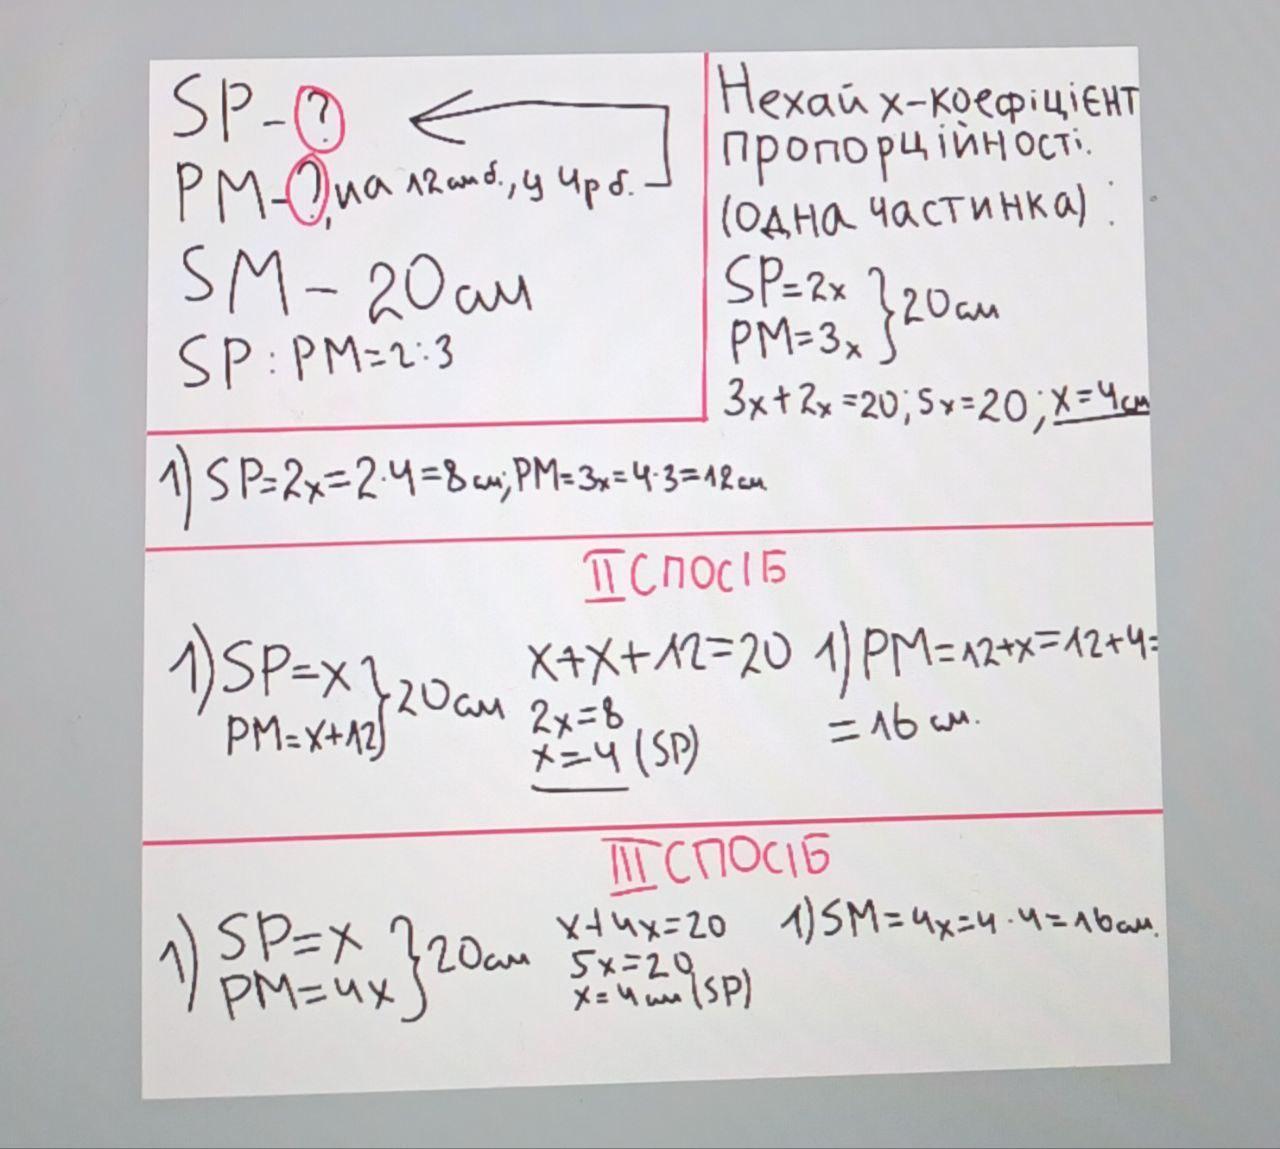 SP-?
PM-?, на 12 см б., у 4 р б.
SM - 20 см
SP : PM = 2:3
Нехай x-коефіцієнт
пропорційності.
(одна частинка) :
SP=2x } 20 см
PM=3x
3x+2x=20; 5x=20; x=4см
1) SP=2x=2·4=8 см; PM=3x=4·3=12см
II спосіб
1) SP=x } 20 см
PM=x+12
x+x+12=20
2x=8
x=4 (SP)
1) PM=12+x=12+4=
=16 см.
III спосіб
1) SP=x } 20 см
PM=4x
x+4x=20
5x=20
x=4 см (SP)
1) SM=4x=4·4=16см.